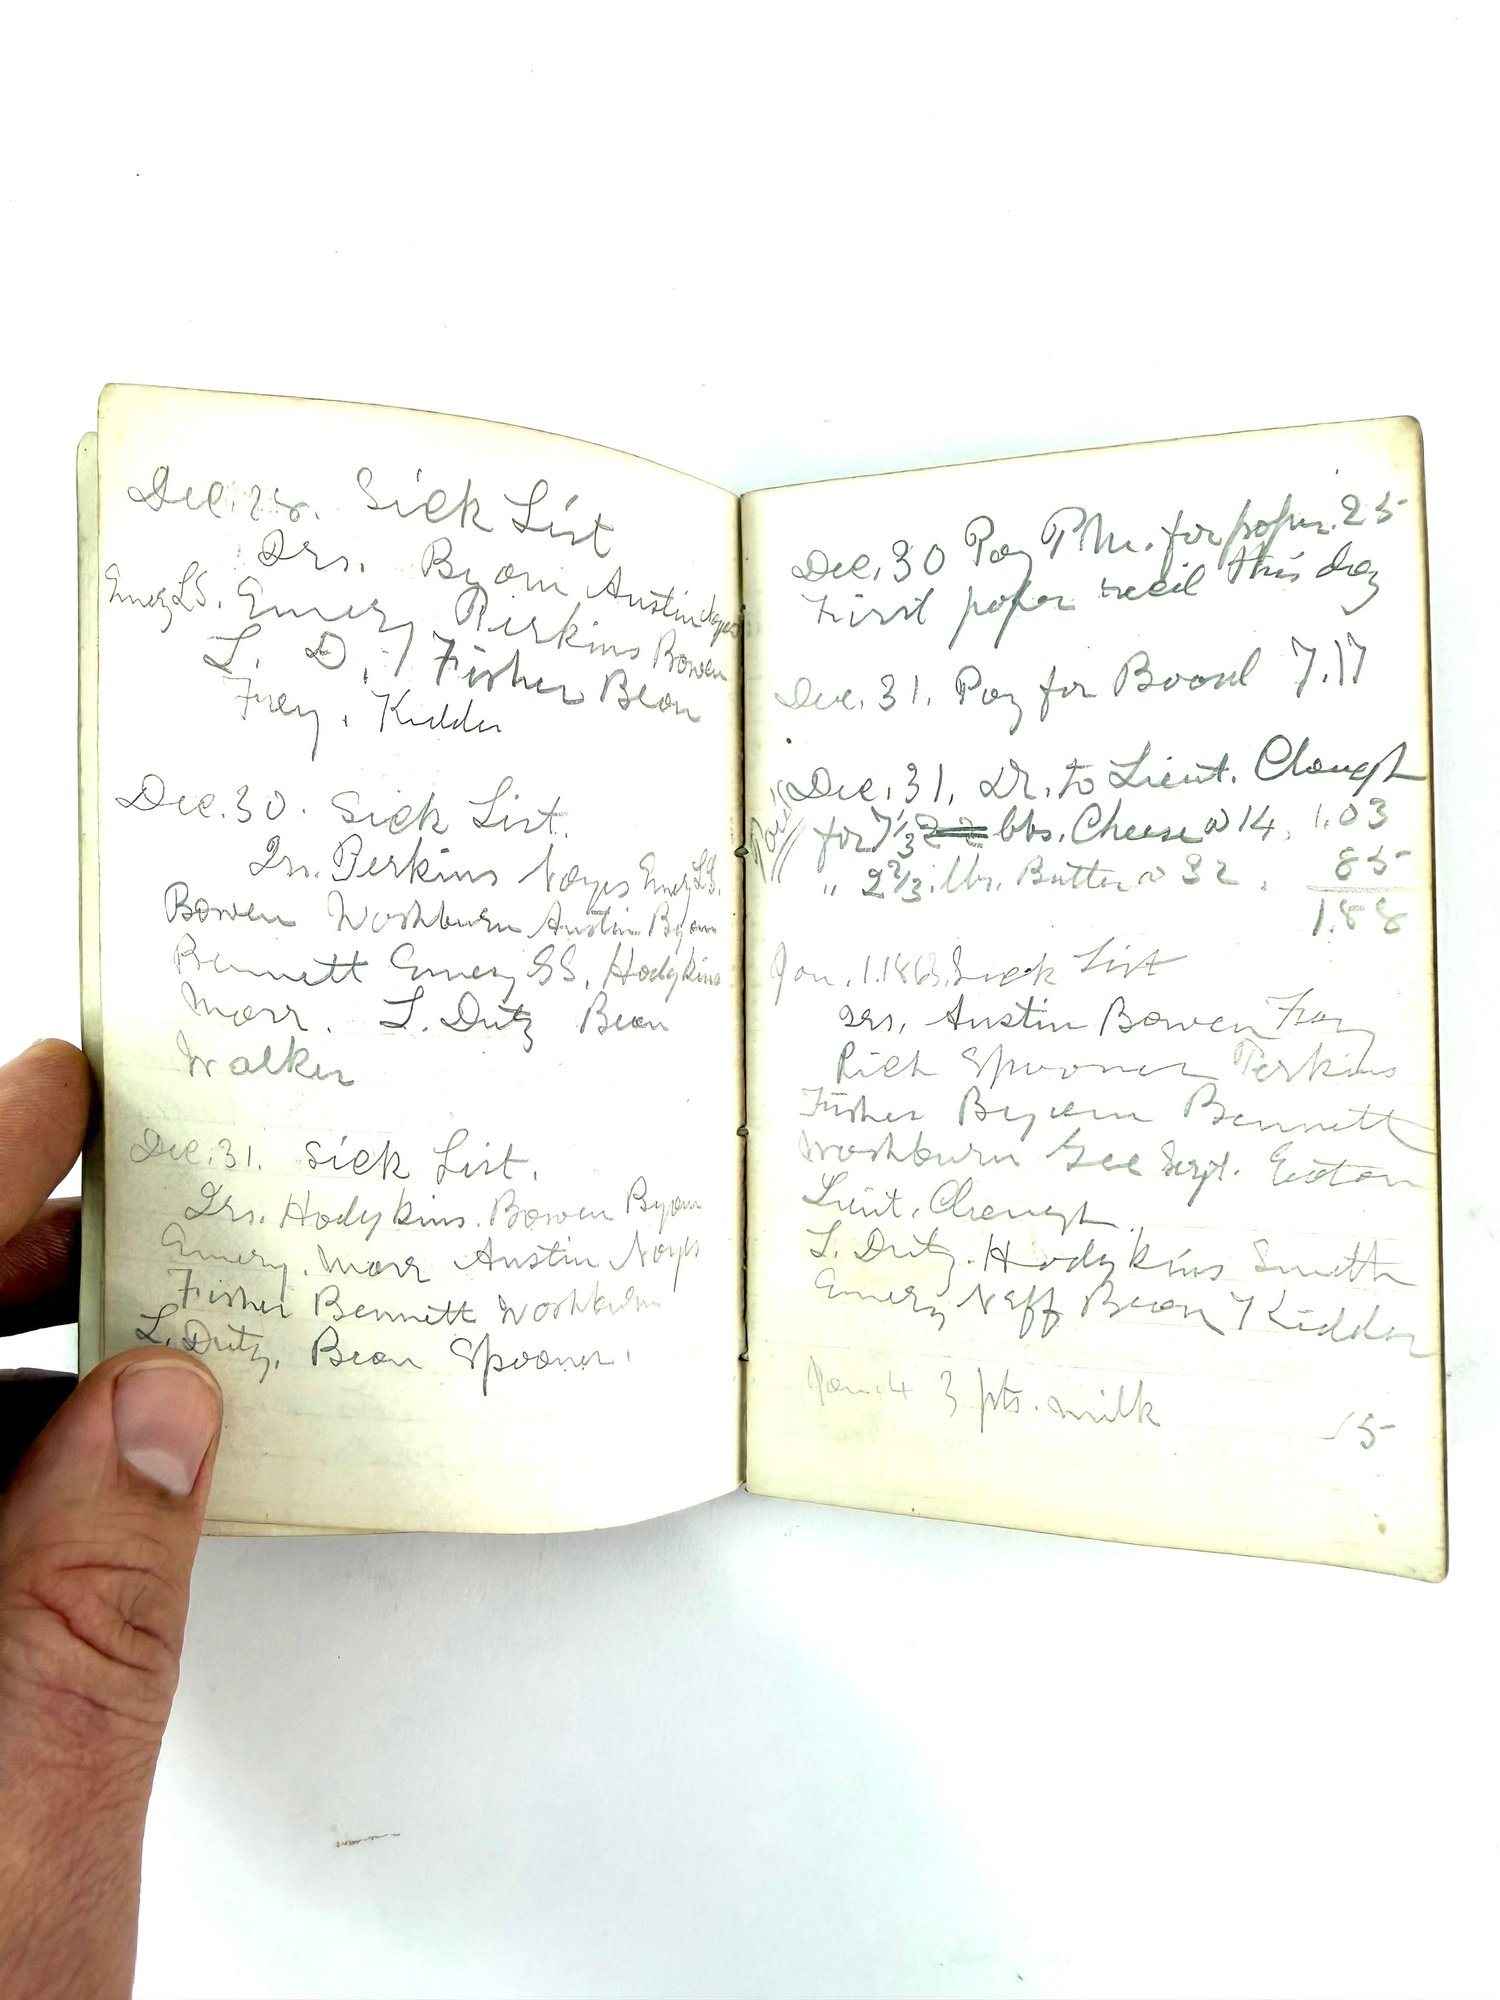 Dec. 28. Sick List
Drs. Byam Austin Noyes
Emery L.S. Emery Perkins Bowen
L. D. / Fisher Bean
Frey, Kidder
Dec. 30. Sick List.
Drs. Perkins Noyes Emery L.S.
Bowen Washburn Austin Byam
Bennett Emery G.S. Hodgkins
Marr. L. Duty Bean
Walker
Dec. 31. Sick List.
Drs. Hodgkins. Bowen Byam
Emery. Marr Austin Noyes
Fisher Bennett Washburn
L. Duty. Bean Spooner.
Dec. 30 Pay P.M. for paper. 25
First paper recd this day
Dec. 31. Pay for Board 7.17
Dec. 31. Dr. to Lieut. Clough
Paid
for 7 1/3 lbs. Cheese @ 14, 1.03
" 2 2/3 lbs. Butter @ 32. 85
1.88
Jan. 1. 1863. Sick List
Drs. Austin Bowen Frey
Rich Spooner Perkins
Fisher Byam Bennett
Washburn Gee Sergt. Eaton
Lieut. Clough
L. Duty. Hodgkins Smith
Emery Neff Bean / Kidder
Jan. 4 3 pts. milk 15